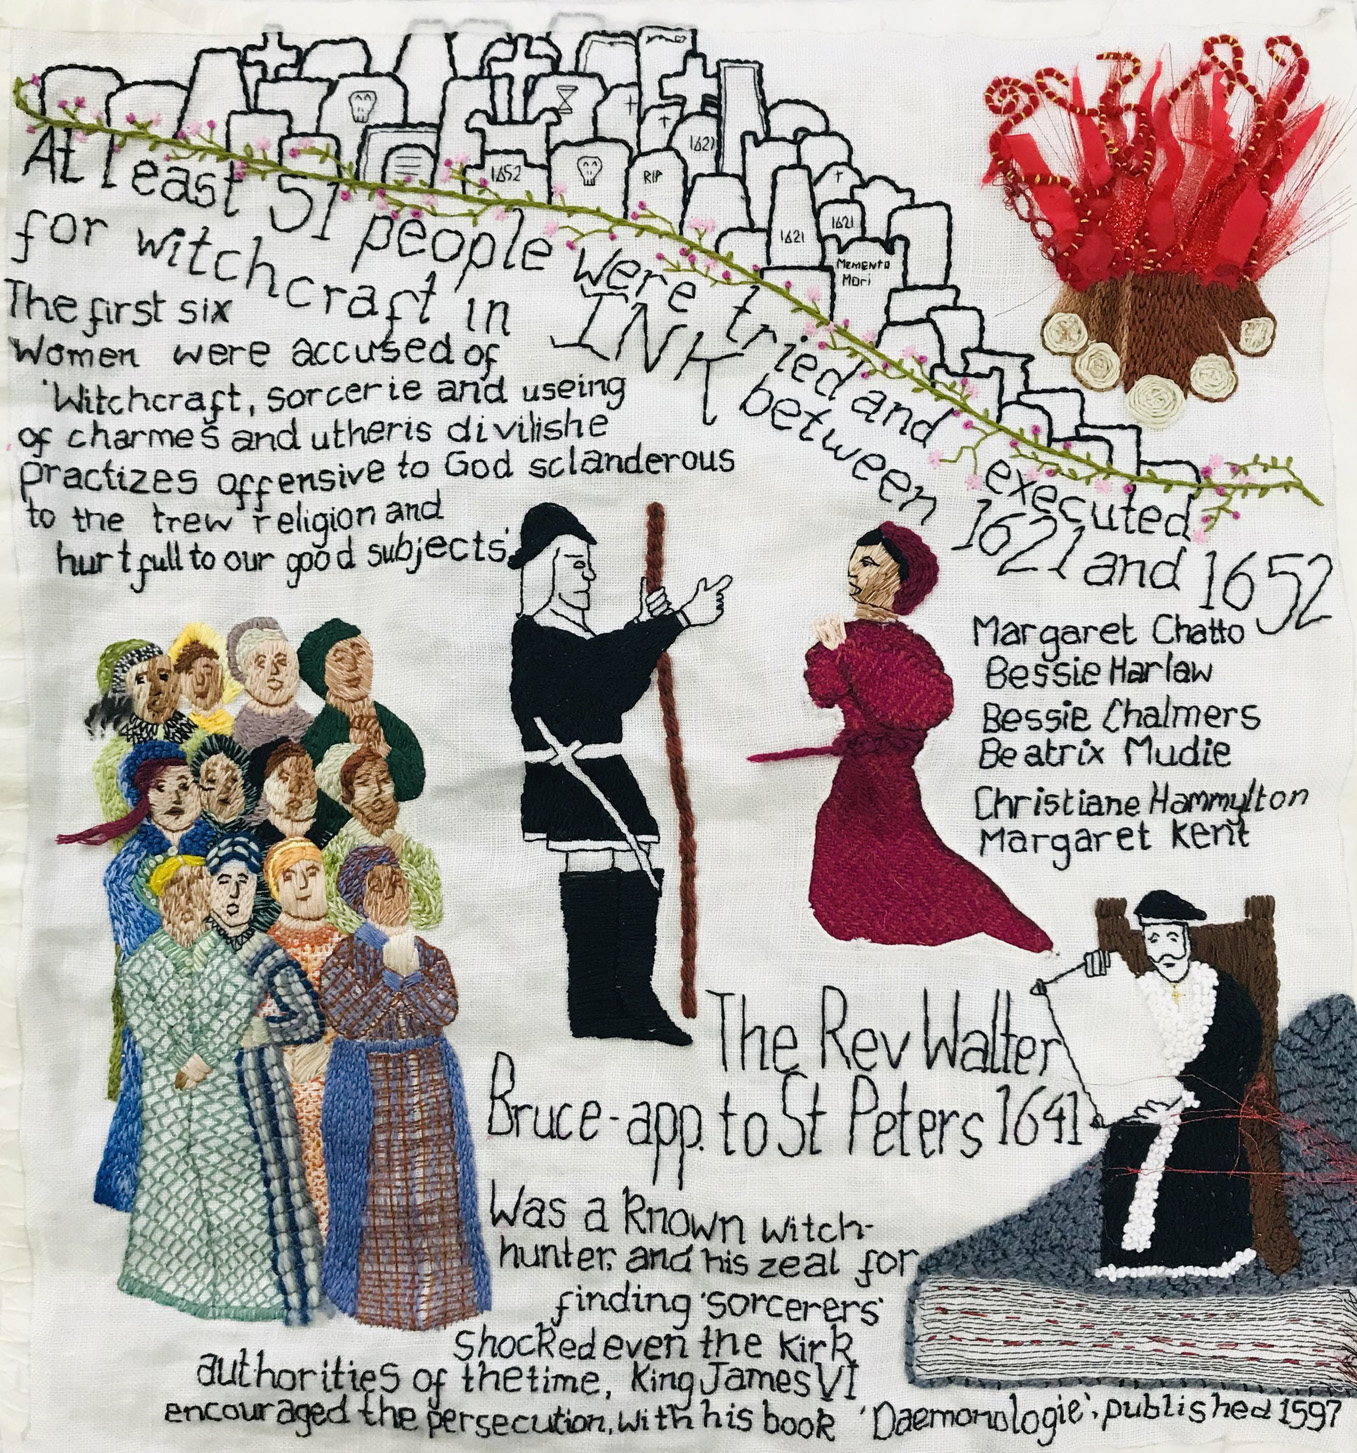 1621
1652
RIP
1621
1621
Memento
Mori
At least 51 people were tried and executed
for witchcraft in INK between 1621 and 1652
The first six
Women were accused of
'Witchcraft, sorcerie and useing
of charmes and utheris divilishe
practizes offensive to God sclanderous
to the trew religion and
hurtfull to our good subjects'
Margaret Chatto
Bessie Harlaw
Bessie Chalmers
Beatrix Mudie
Christiane Hammylton
Margaret Kent
The Rev Walter
Bruce-app. to St Peters 1641
Was a known witch-
hunter, and his zeal for
finding 'sorcerers'
shocked even the Kirk
authorities of the time, King James VI
encouraged the persecution, with his book 'Daemonologie', published 1597